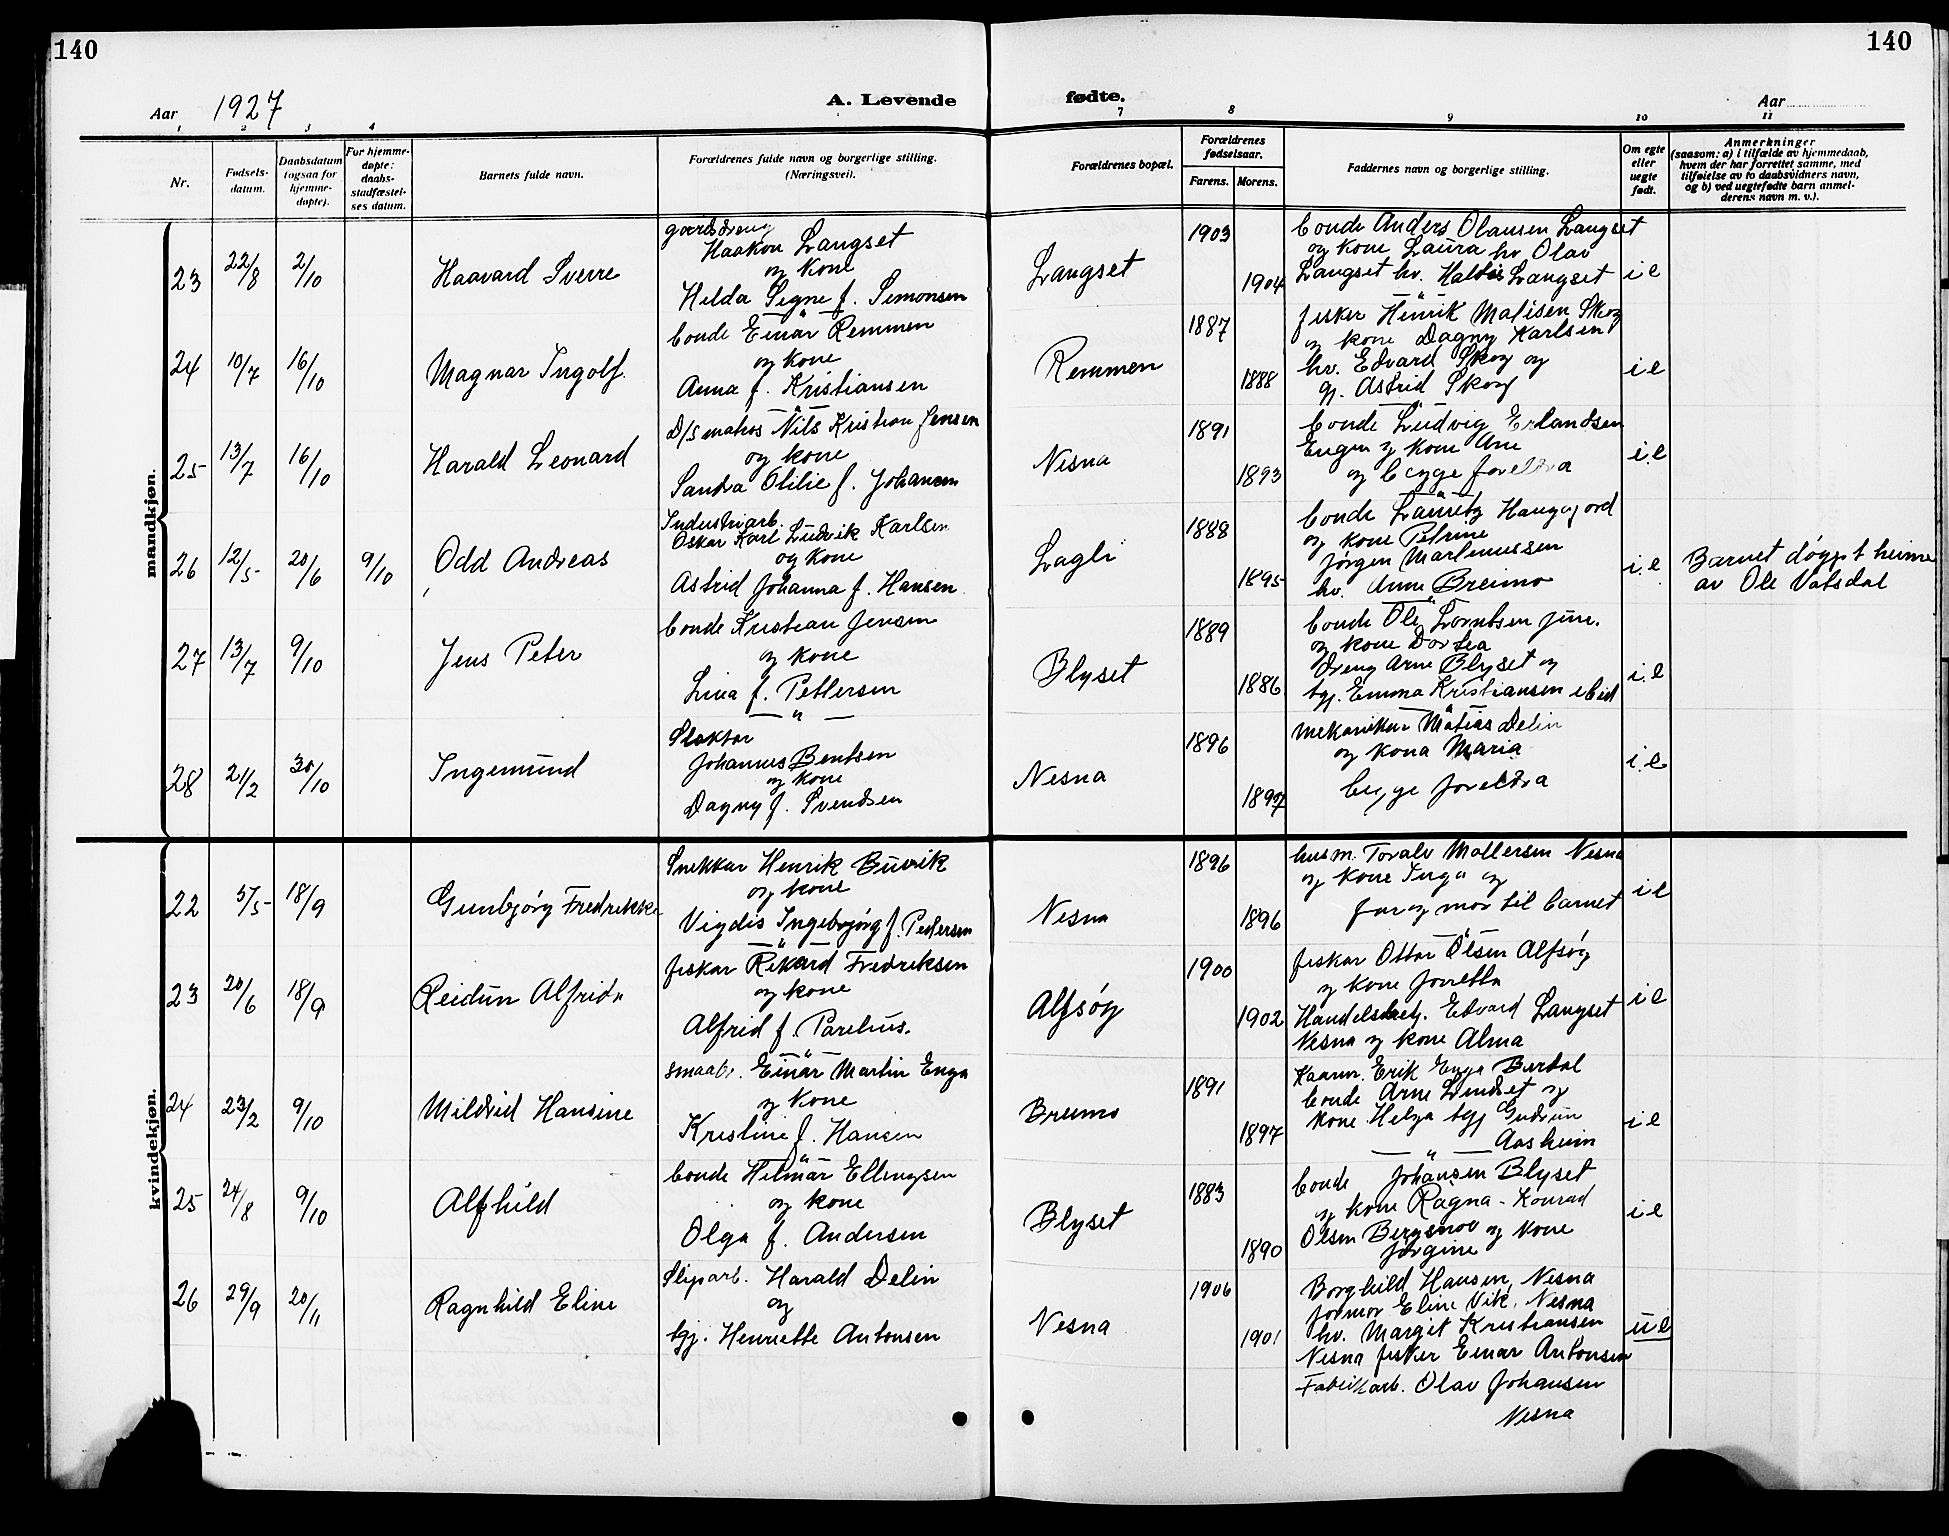 140
140
Aar 1927
A. Levende
fødte.
Aar
1 2 3 4
7 8 9 10 11
Nr.
Fødsels-
datum.
Daabsdatum
(ogsaa for
hjemme-
døpte).
For hjemme-
døpte:
daabs-
stadfæstel-
ses datum.
Barnets fulde navn.
Forældrenes fulde navn og borgerlige stilling.
(Næringsvei).
Forældrenes bopæl.
Forældrenes
fødselsaar.
Farens. Morens.
Faddernes navn og borgerlige stilling.
Om egte
eller
uegte
født.
Anmerkninger
(saasom: a) i tilfælde av hjemmedaab,
hvem der har forrettet samme, med
tilføielse av to daabsvidners navn,
og b) ved uegtefødte barn anmel-
derens navn m. v.).
mandkjøn.
23 22/8 2/10
Haavard Sverre
Haakon Langset
og kone
Helda Signe f. Simonsen
Langset
1903
1904
bonde Anders Olausen Langset
og kone Laura hv. Olav
Langset hv. Haldis Langset
i e
24 10/7 16/10
Magnar Ingolf.
bonde Einar Remmen
og kone
Anna f. Kristiansen
Remmen
1887
1888
fisker Henrik Matisen Skog
og kone Dagny Karlsen
hv. Edvard Skog og
gj. Astrid Skog
i e
25 13/7 16/10
Harald Leonard
D/S matros Nils Kristian Jensen
og kone
Sandra Otilie f. Johansen
Nesna
1891
1893
bonde Ludvig Erlandsen
Engen og kone Ane
og begge foreldra
i e
26 12/5 20/6 9/10
Odd Andreas
Industriarb.
Oskar Karl Ludvik Karlsen
og kone
Astrid Johanna f. Hansen
Lagli
1888
1895
bonde Lauritz Haugjord
og kone Petrine
Jørgen Martinussen
hv. Anne Breimo
i e
Barnet døypt heime
av Ole Vatsdal
27 13/7 9/10
Jens Peter
bonde Kristian Jensen
og kone
Lina f. Pettersen
Blyset
1889
1886
bonde Ole Lorntsen jun.
og kone Dortea
dreng Arne Blyset og
tgj. Emma Kristiansen ibid
i e
28 21/2 30/10
Ingemund
Slaktar
Johannes Bentsen
og kone
Dagny f. Svendsen
Nesna
1896
1897
mekaniker Matias Delin
og kona Maria
begge foreldra
i e
kvindekjøn.
22 5/5 18/9
Gunbjørg Fredrikke
Snekkar Henrik Buvik
og kone
Vigdis Ingebjørg f. Pedersen
Nesna
1896
1896
husm. Toralv Mollersen Nesna
og kone Inga og
far og mor til barnet
i e
23 20/6 18/9
Reidun Alfrida
fiskar Rikard Fredriksen
og kone
Alfrid f. Parelius.
Alfsøy
1900
1902
fiskar Ottar Olsen Alfsøy
og kone Joretta
Handelsbetj. Edvard Langset
Nesna og kone Alma
i e
24 23/2 9/10
Mildrid Hansine
smaabr. Einar Martin Enga
og kone
Kristine f. Hansen
Breimo
1891
1897
Kaarm. Erik Enga Burdal
bonde Arne Lundset og
kone Helga tgj Gudrun
Aasheim
i e
25 24/8 9/10
Alfhild
bonde Hilmar Ellingsen
og kone
Olga f. Andersen
Blyset
1883
1890
bonde Johansen Blyset
og kone Ragna - Konrad
Olsen Bergsnov og kone
Jørgine
i e
26 29/9 20/11
Ragnhild Eline
Sliparb. Harald Delin
og
tgj. Henriette Antonsen
Nesna
1906
1901
Borghild Hansen, Nesna
formor Eline Vik, Nesna
hv. Margit Kristiansen
Nesna fisker Einar Antonsen
Fabrikkarb. Olav Johansen
Nesna
u e